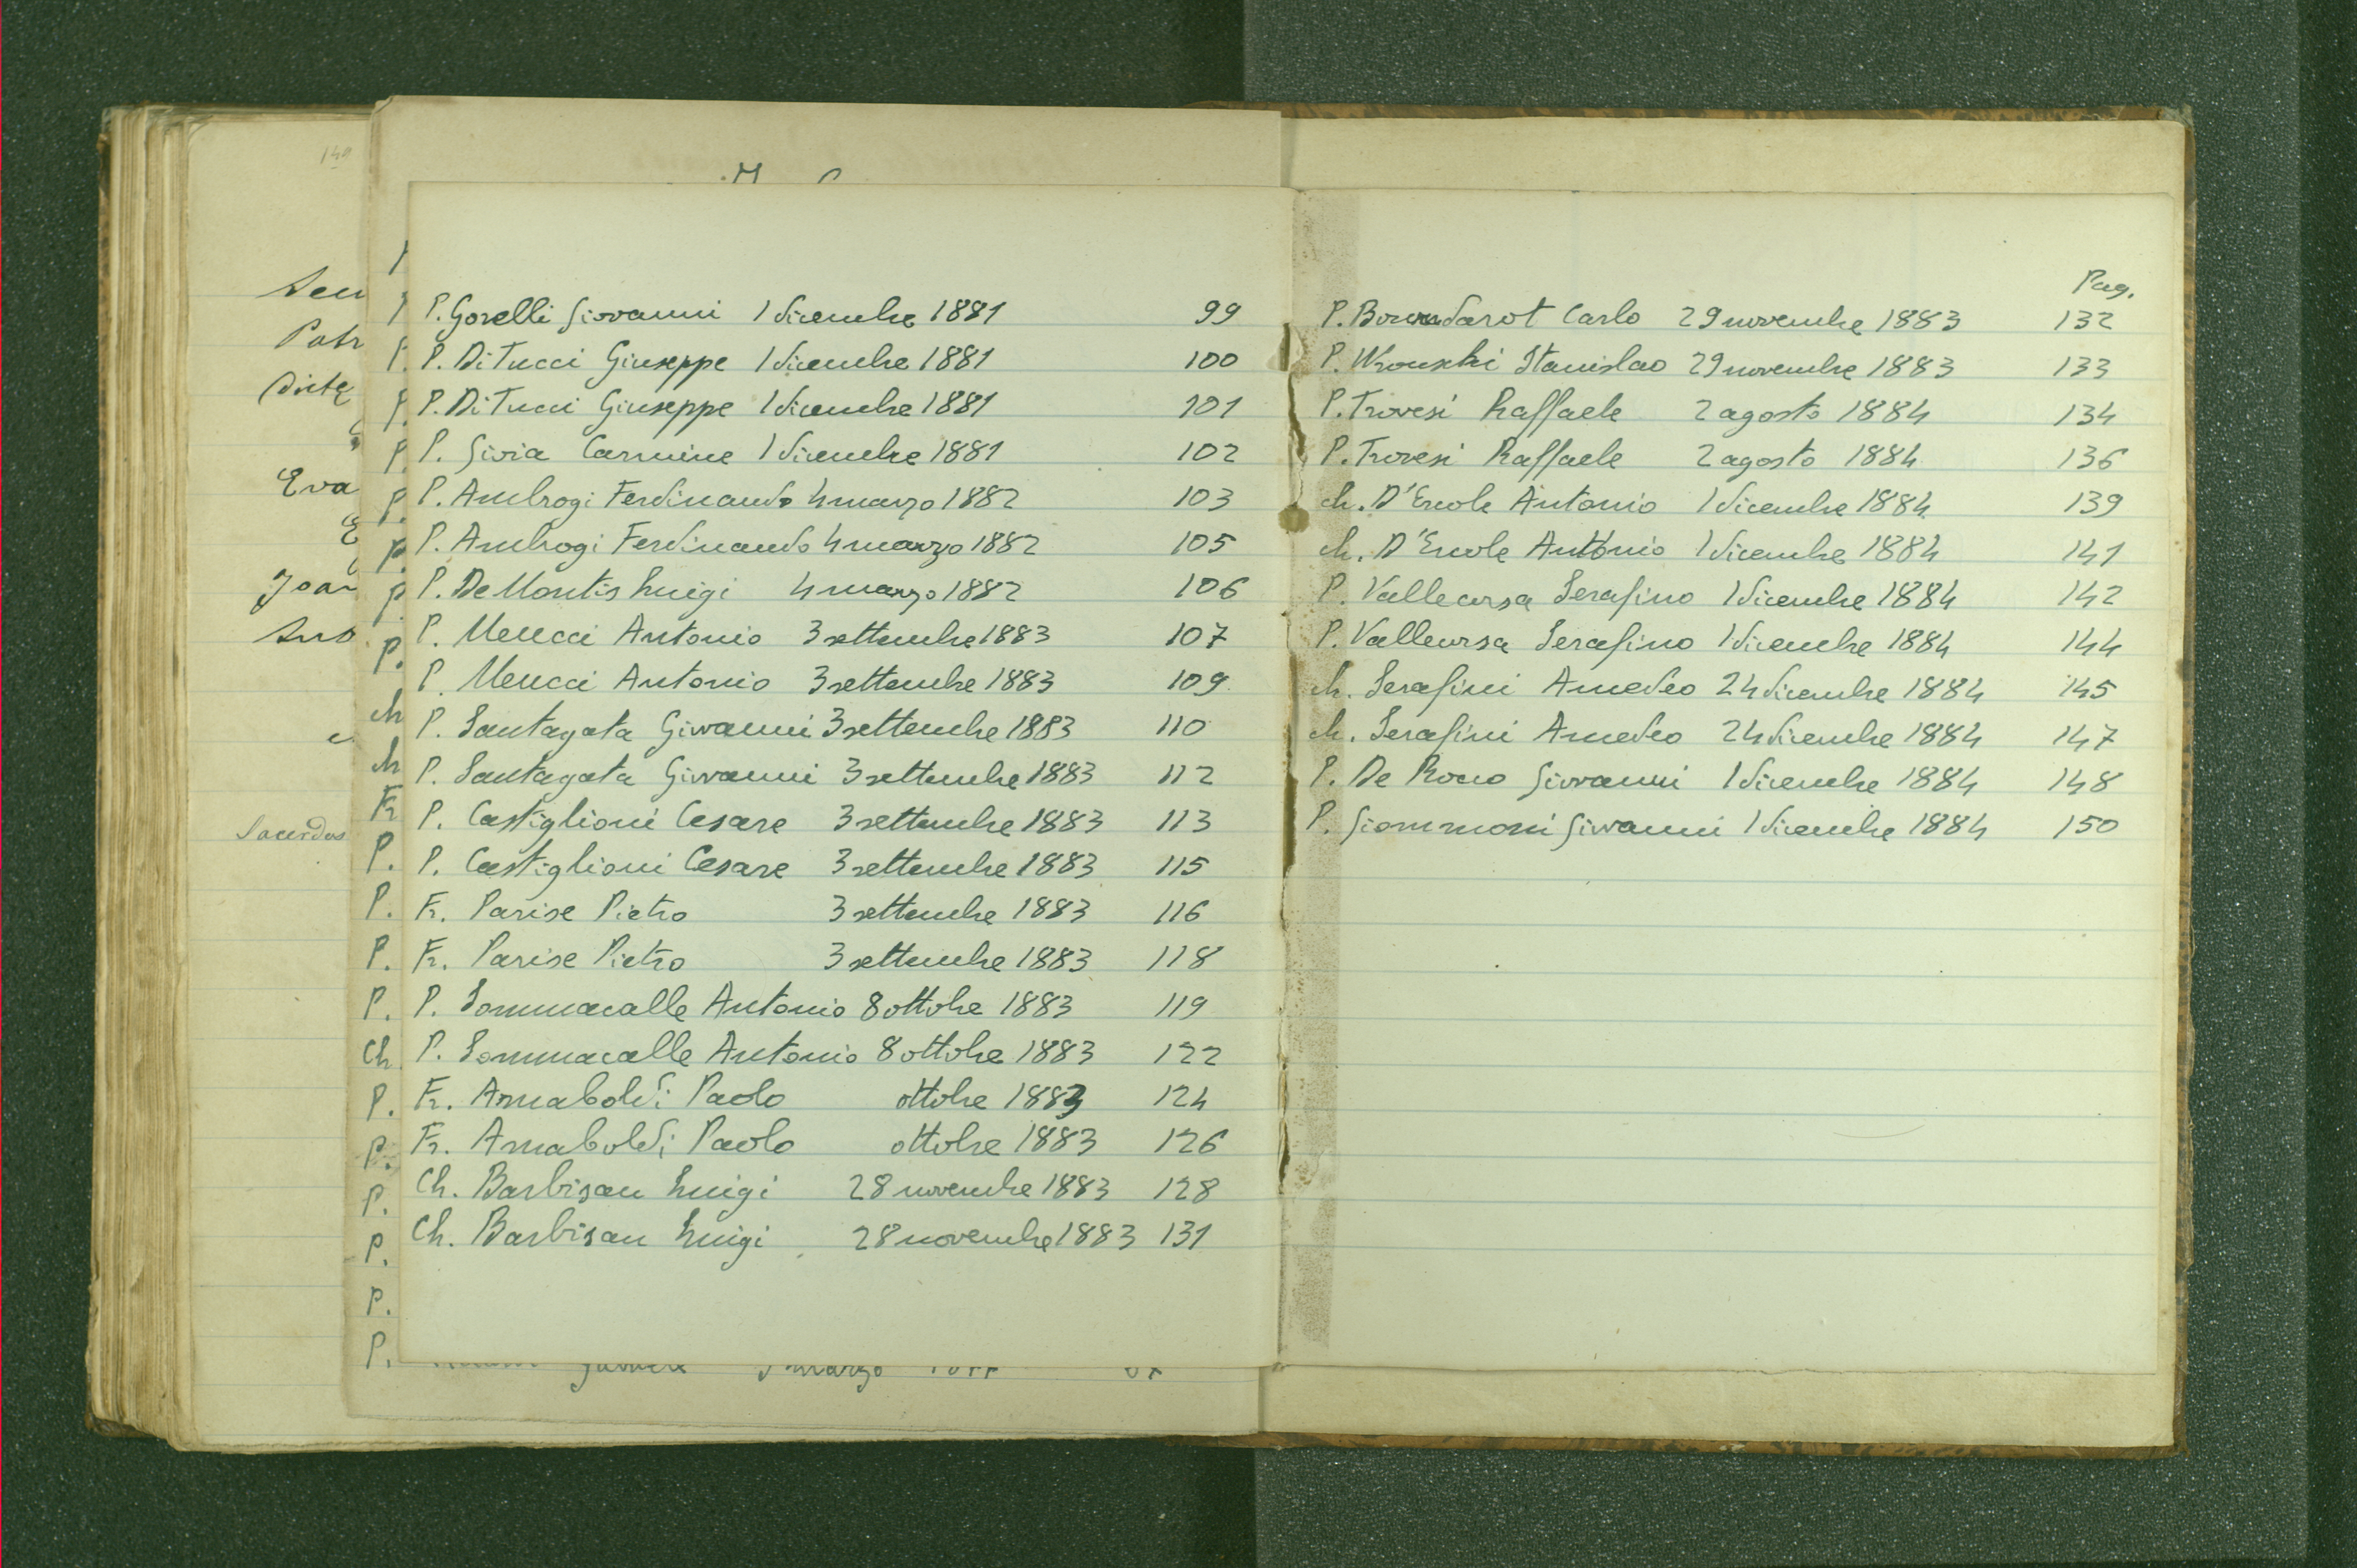 149
Patr
Eva
Joan
Sacerdos
P. Gorelli Giovanni 1 dicembre 1881 99
P. Di Tucci Giuseppe 1 dicembre 1881 100
P. Di Tucci Giuseppe 1 dicembre 1881 101
P. Givia Carmine 1 dicembre 1881 102
P. Ambrogi Ferdinando 4 marzo 1882 103
P. Ambrogi Ferdinando 4 marzo 1882 105
P. De Montis Luigi 4 marzo 1882 106
P. Meucci Antonio 3 settembre 1883 107
P. Meucci Antonio 3 settembre 1883 109
P. Santagata Giovanni 3 settembre 1883 110
P. Santagata Giovanni 3 settembre 1883 112
P. Castiglioni Cesare 3 settembre 1883 113
P. Castiglioni Cesare 3 settembre 1883 115
Fr. Parise Pietro 3 settembre 1883 116
Fr. Parise Pietro 3 settembre 1883 118
P. Sommacalle Antonio 8 ottobre 1883 119
P. Sommacalle Antonio 8 ottobre 1883 122
Fr. Arnaboldi Paolo ottobre 1883 124
Fr. Arnaboldi Paolo ottobre 1883 126
Ch. Barbisan Luigi 28 novembre 1883 128
Ch. Barbisan Luigi 28 novembre 1883 131
Pag.
P. Carlo 29 novembre 1883 132
P. Stanislao 29 novembre 1883 133
P. Trovesi Raffaele 2 agosto 1884 134
P. Trovesi Raffaele 2 agosto 1884 136
ch. D'Ercole Antonio 1 dicembre 1884 139
ch. D'Ercole Antonio 1 dicembre 1884 141
P. Vallecorsa Serafino 1 dicembre 1884 142
P. Vallecorsa Serafino 1 dicembre 1884 144
ch. Serafini Amedeo 24 dicembre 1884 145
ch. Serafini Amedeo 24 dicembre 1884 147
P. De Rocco Giovanni 1 dicembre 1884 148
P. Giommoni Giovanni 1 dicembre 1884 150